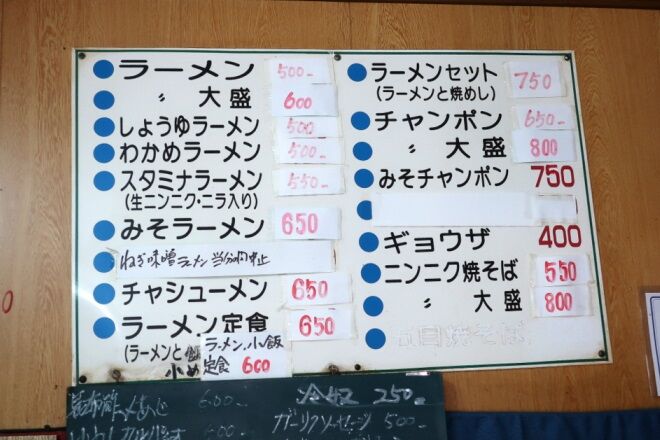 ラーメン 500-
〃 大盛 600
しょうゆラーメン 500
わかめラーメン 500-
スタミナラーメン 550-
(生ニンニク・ニラ入り)
みそラーメン 650
ねぎ味噌ラーメン 当分の間中止
チャシューメン 650
ラーメン定食 650
(ラーメンと
小め
ラーメン、小飯
定食 600
ラーメンセット 750
(ラーメンと焼めし)
チャンポン 650-
〃 大盛 800
みそチャンポン 750
ギョウザ 400
ニンニク焼そば 550
〃 大盛 800
五目焼そば
600-
250-
ガーリックソーセージ 500-